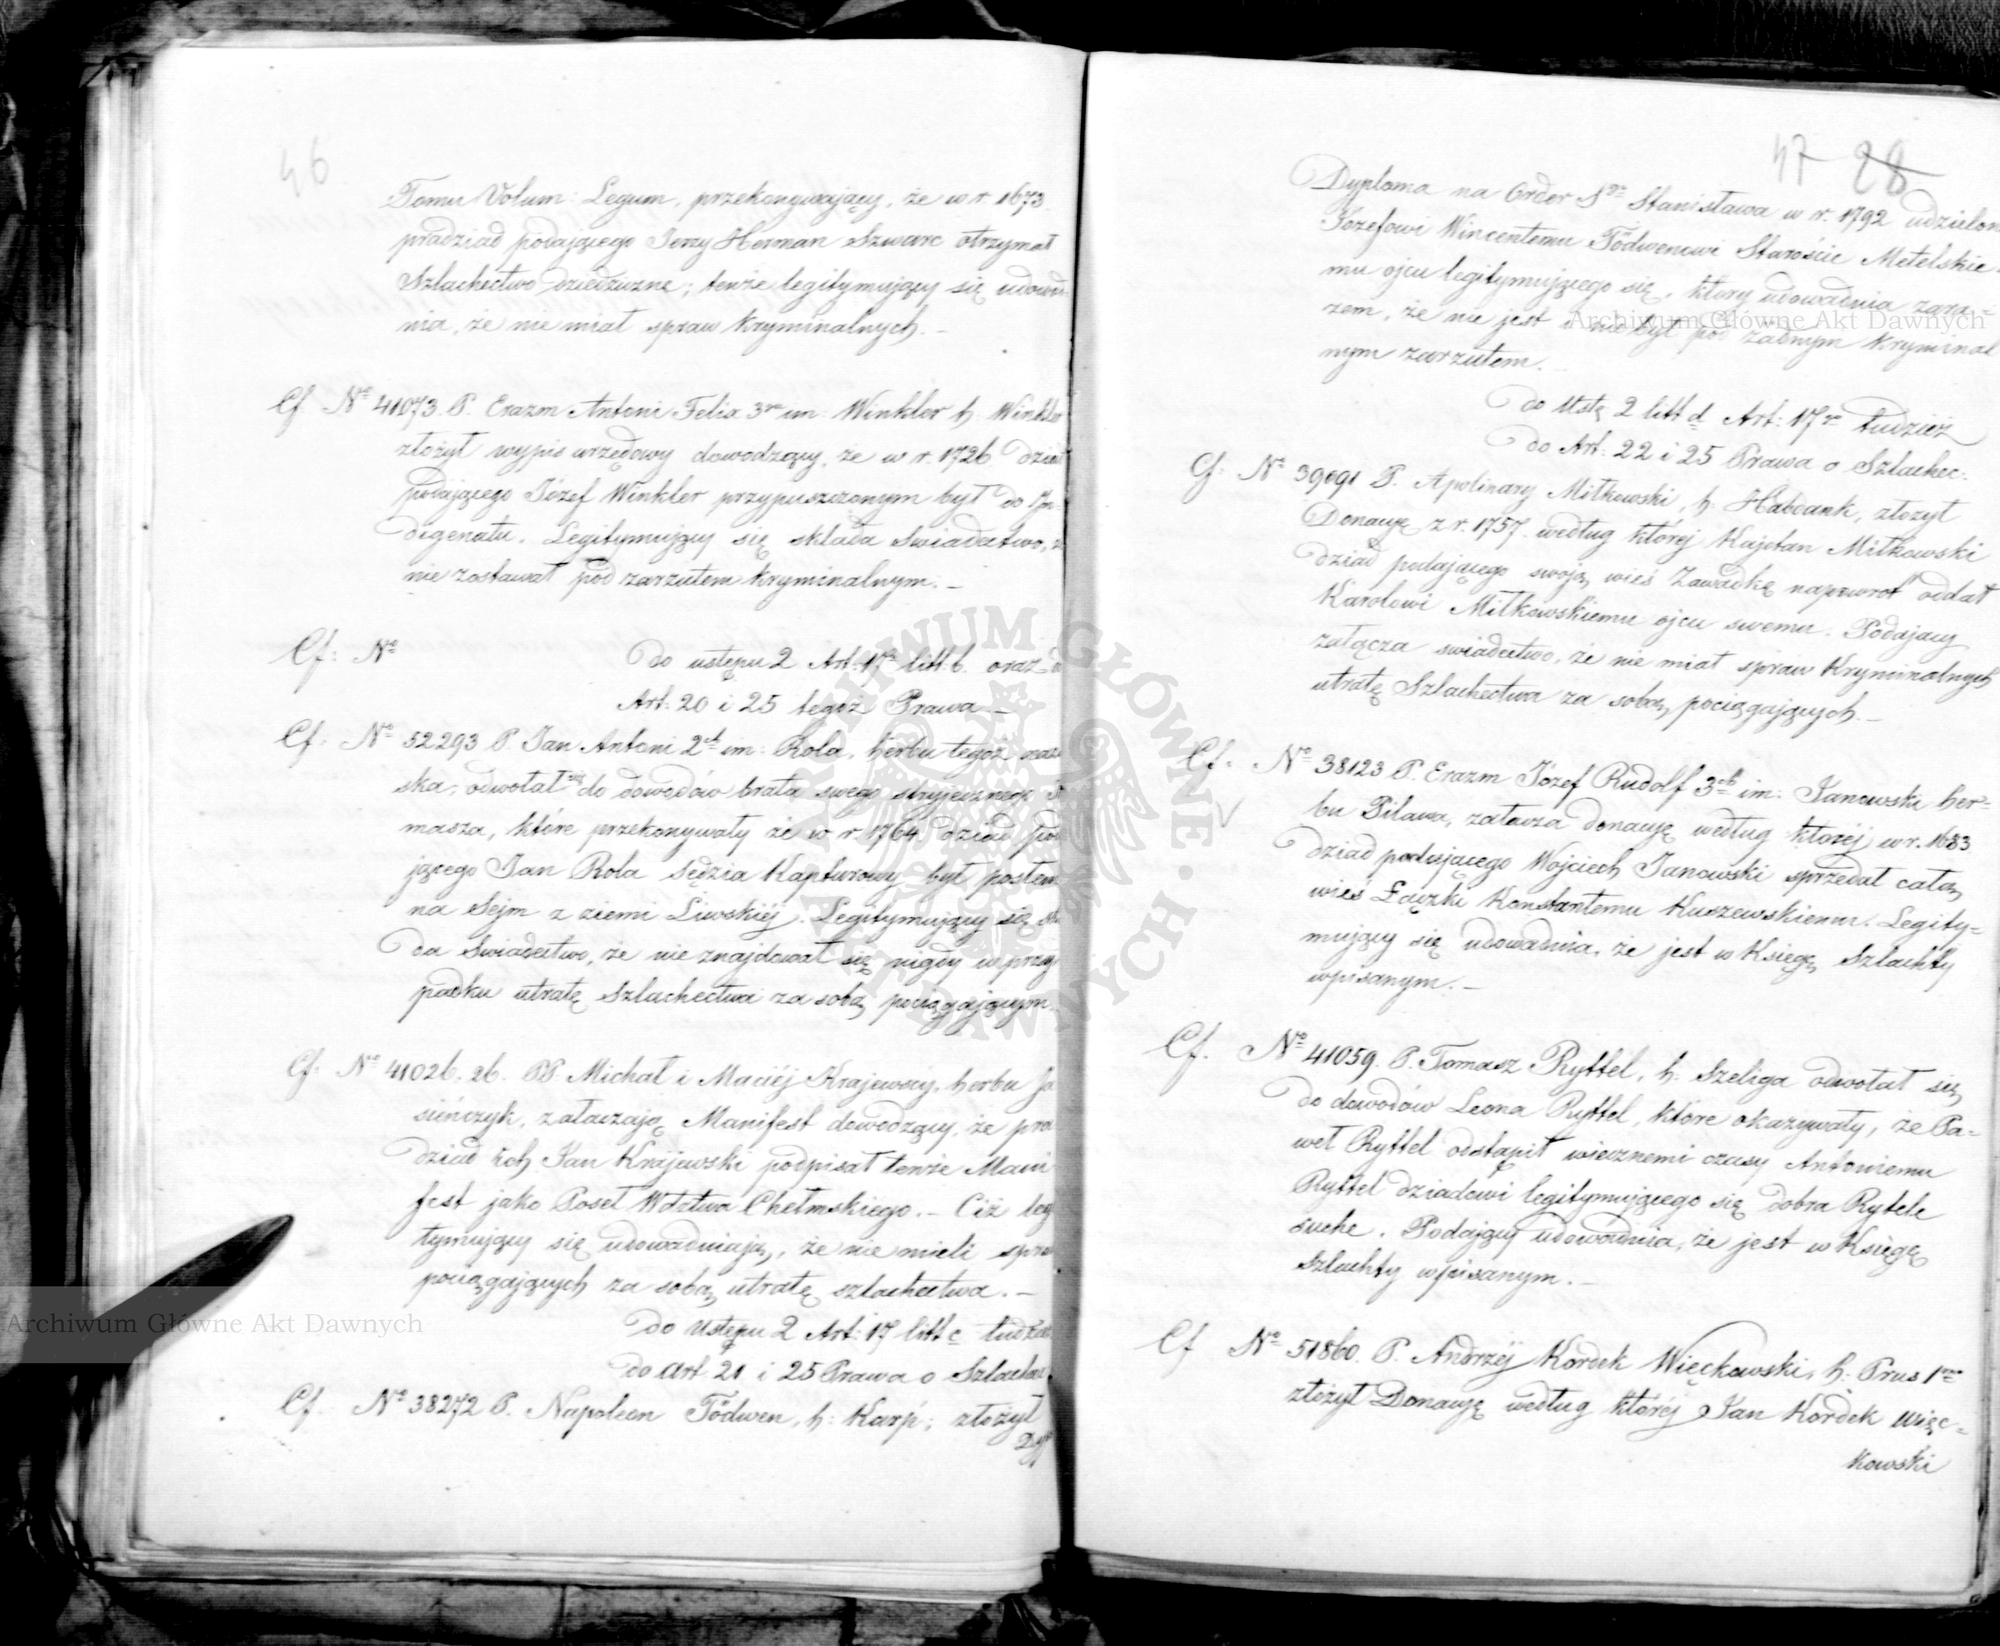 46
Tomu Volum: Legum, przekonywający, że w r. 1673
pradziad podającego Jerzy Herman Szwarc otrzymał
Szlachectwo dziedziczne; tenże legitymujący się udowa
nia, że nie miał spraw kryminalnych. –
Cf. Nº 41073. P. Erazm Antoni Felix 3ga im: Winkler h. Winkler
złożył wypis urzędowy dowodzący, że w r. 1726 dziad
podającego Józef Winkler przypuszczonym był do In-
digenatu. Legitymujący się składa Świadectwo,
nie zostawał pod zarzutem kryminalnym. –
Cf: Nº do ustępu 2 Art: 17º litt. b. oraz d
Art: 20 i 25 tegoż Prawa. –
Cf: Nº 52293 P. Jan Antoni 2ch im: Rola, herbu tegoż nazwi
ska, odwołał się do dowodów brata swego stryjecznego
masza, które przekonywały że w r 1764 dziad poda
jącego Jan Rola Sędzia Kapturowy był posłem
na Sejm z ziemi Liwskiéj. Legitymujący się skła
da Świadectwo, że nie znajdował się nigdy w przy
padku utratę Szlachectwa za sobą pociągającym.
Cf: Nº 41026. 26. PP. Michał i Maciéj Krajewscy, herbu Ja
sieńczyk, załaczają Manifest dowodzący, że pra
dziad ich Jan Krajewski podpisał tenże Mani
fest jako Poseł Wdztwa Chełmskiego. – Ciż leg
tymujący się udowadniają, że nie mieli spra
pociągających za sobą utratę szlachectwa. –
do Ustępu 2 Art: 17 litt c tudzież
do Art 21 i 25 Prawa o Szlachec
Cf. Nº 38272 P. Napoleon Tödwen, h: Karp; złożył
Dy
47 28
Dyploma na Order Sgo Stanisława w r. 1792 udzielon
Józefowi Wincentemu Tödwenowi Staroście Metelskie-
mu ojcu legitymującego się, który udowadnia zara-
zem, że nie jest i nie był pod żadnym kryminal
nym zarzutem.
do Ustę 2 litt d Art: 17go tudzież
do Art: 22 i 25 Prawa o Szlachec:
Cf: Nº 39091 P. Apolinary Miłkowski, h: Habdank, złożył
Donacyę z r. 1757. według któréj Kajetan Miłkowski
dziad podającego swoją wieś Zawadkę napowrot oddał
Karolowi Miłkowskiemu ojcu swemu. Podajacy
załącza świadectwo, że nie miał spraw Kryminalnych
utratę Szlachectwa za sobą pociągających. –
Cf. Nº 38123 P. Erazm Józef Rudolf 3ch im: Janowski her-
bu Pilawa, załacza donacyę według któréj w r. 1683
dziad podającego Wojciech Janowski sprzedał całą
wieś Łączki Konstantemu Kuszewskiemu. Legity-
mujący się udowadnia, że jest w Księgę Szlachty
wpisanym. –
Cf. Nº 41059. P. Tomasz Ryttel, h. Szeliga odwołał się
do dowodów Leona Ryttel, które okazywały, że Pa-
weł Ryttel odstąpił wiecznemi czasy Antoniemu
Ryttel dziadowi legitymującego się dobra Rytele
suche. Podający udowadnia, że jest w Księgę
Szlachty wpisanym. –
Cf Nº 51860. P. Andrzéj Kordek Więckowski, h: Prus 1mo
złożył Donacyę według któréj Jan Kordek Więc-
kowski
Archiwum Główne Akt Dawnych
Archiwum Główne Akt Dawnych
ARCHIWUM GŁÓWNE AKT DAWNYCH